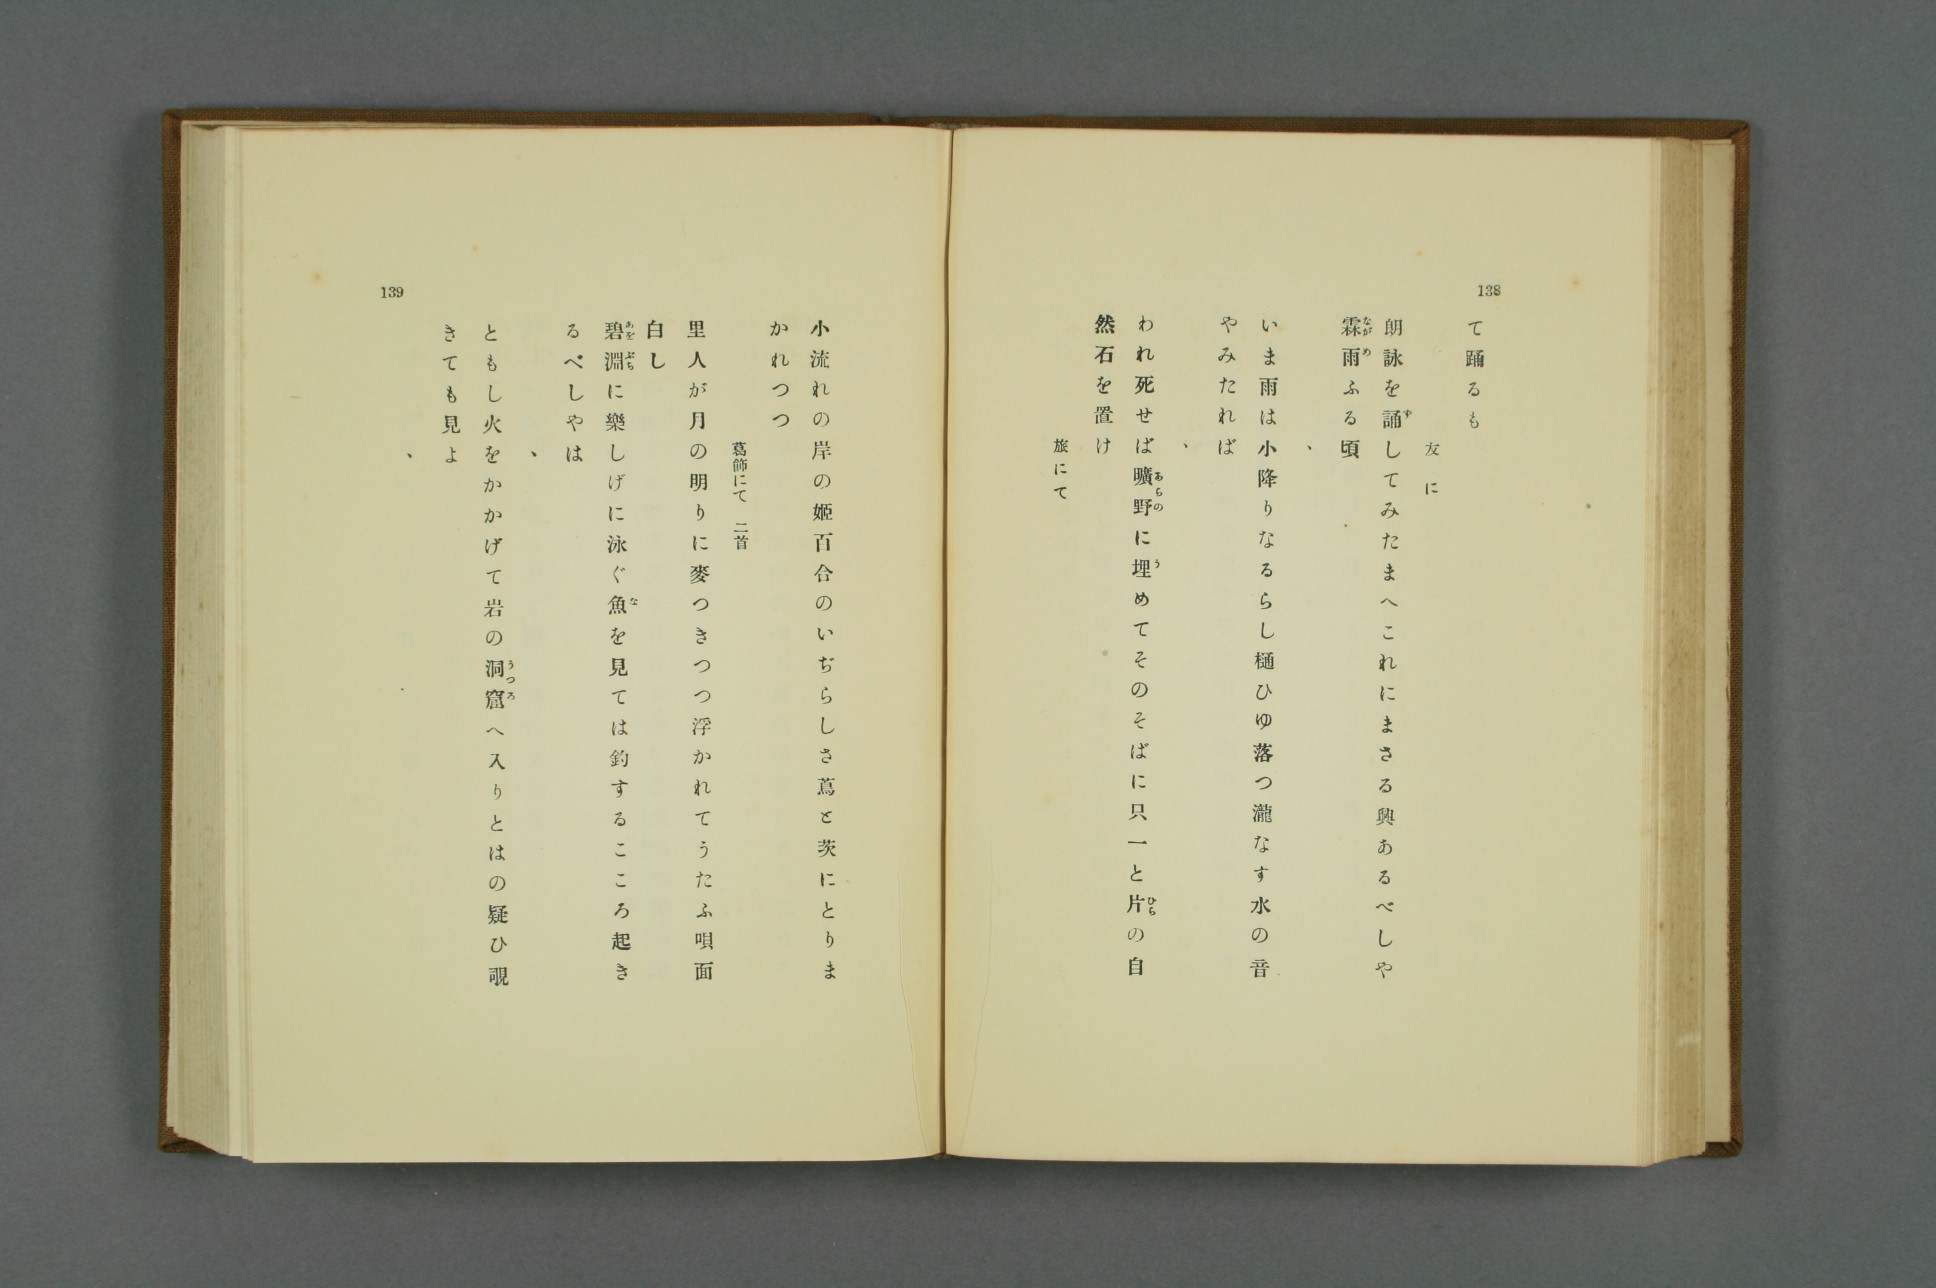 138
て踊るも
友に
朗詠を誦してみたまへこれにまさる興あるべしや
霖雨ふる頃
、
いま雨は小降りなるらし樋ひゆ落つ瀧なす水の音
やみたれば
、
われ死せば曠野に埋めてそのそばに只一と片の自
然石を置け
旅にて
小流れの岸の姬百合のいぢらしさ蔦と茨にとりま
かれつつ
葛飾にて 二首
里人が月の明りに麥つきつつ浮かれてうたふ唄面
白し
碧淵に樂しげに泳ぐ魚を見ては釣するこころ起き
るべしやは
、
ともし火をかかげて岩の洞窟へ入りとはの疑ひ覗
きても見よ
、
139